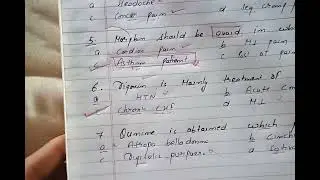 a Headache
c Cancer pain d leg cramp
5. Morphin should be avoid in
a Cardiac pain b MI pain
c Asthma patient c
6. Digoxin is Mainly treatment of
a HTN b Acute
c Chronic CHF d MI
7. Quinine is obtained which
a Atropa belladonna b
c Digitalis purpurea d